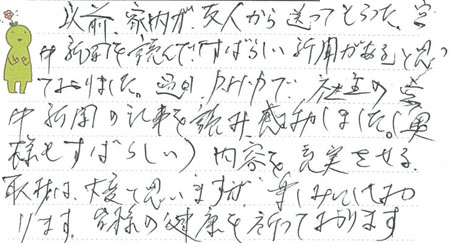 以前、家内が友人から送ってもらった、宮
中新聞を読んで「すばらしい新聞がある」と思っ
ておりました。過日、 で、社主の宮
中新聞の記事を読み感動しました。(奥
様もすばらしい)内容を充実させる
取材は、大変と思いますが、楽しみにしてお
ります。皆様の健康を祈っております